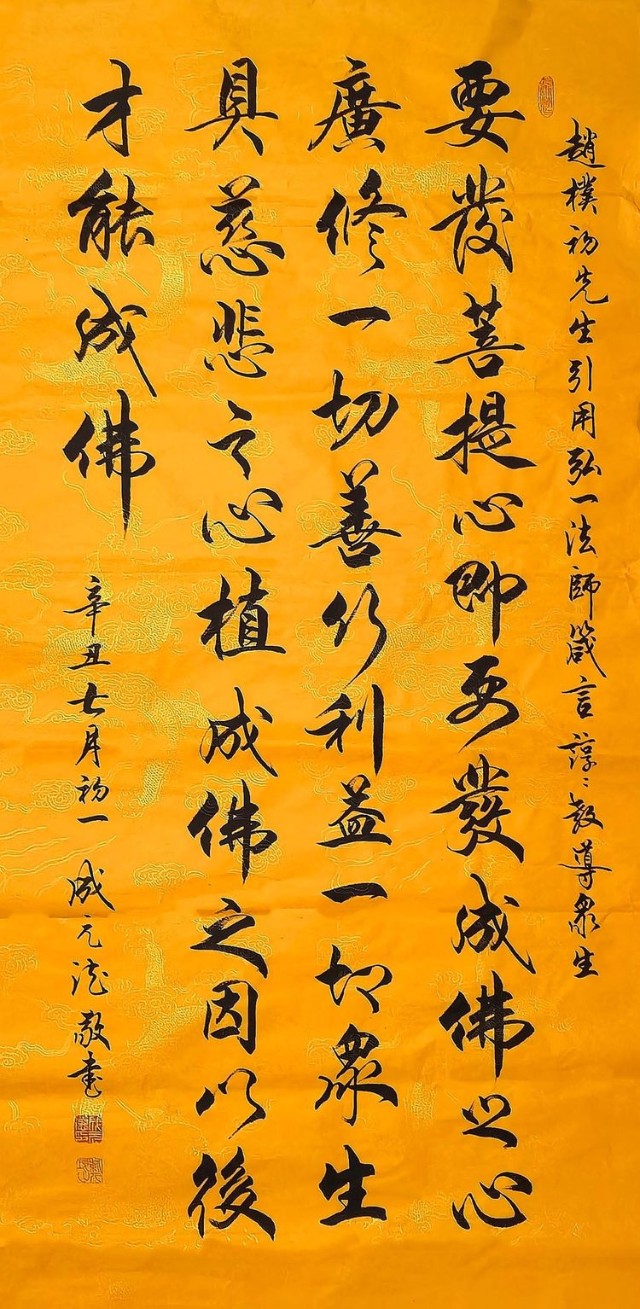 趙樸初先生引用弘一法師箴言諄諄教導眾生
要發菩提心即要發成佛之心
廣修一切善行利益一切眾生
具慈悲之心植成佛之因以後
才能成佛
辛丑七月初一 成元法敬書